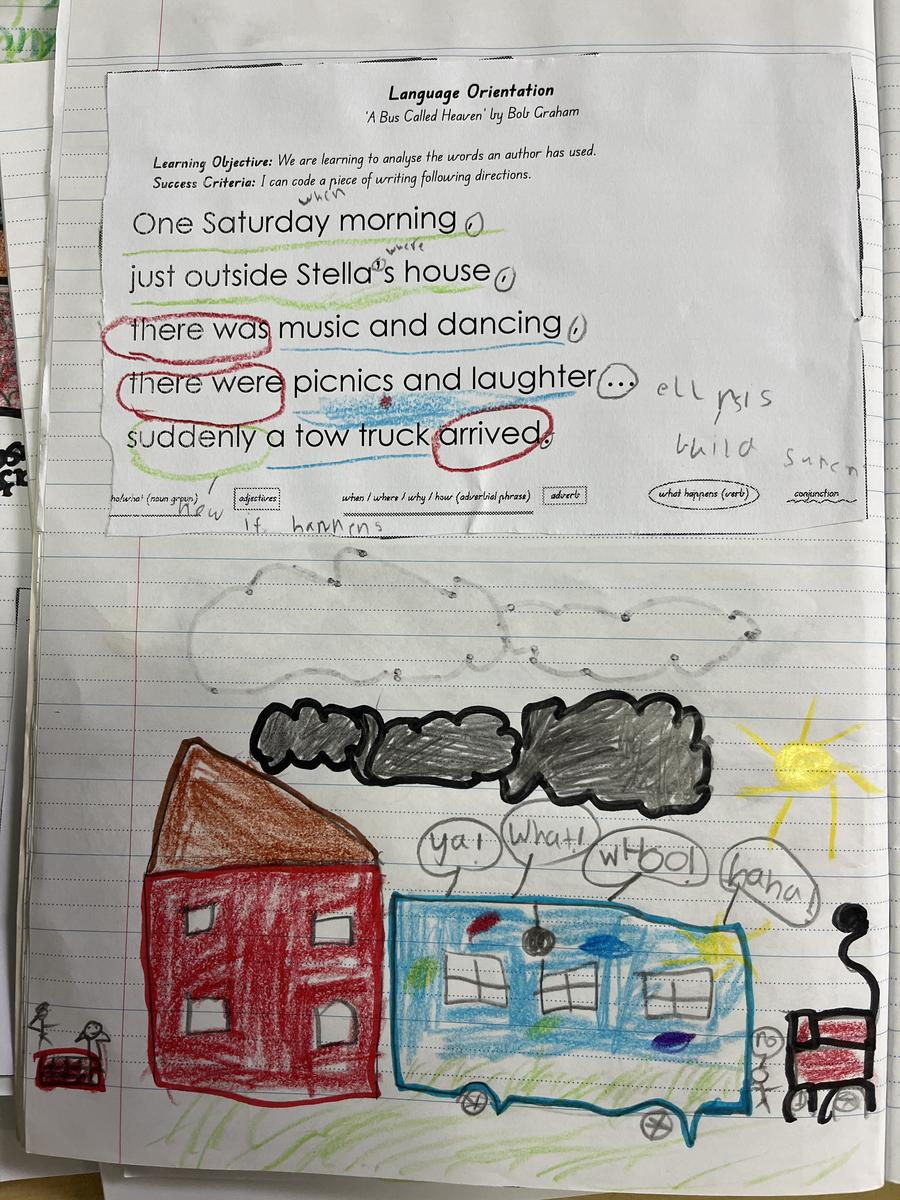 Language Orientation
'A Bus Called Heaven' by Bob Graham
Learning Objective: We are learning to analyse the words an author has used.
Success Criteria: I can code a piece of writing following directions.
when
One Saturday morning,
where
just outside Stella's house,
there was music and dancing,
there were picnics and laughter...
ellipsis
suddenly a tow truck arrived.
build
ho/what (noun group) adjectives when / where / why / how (adverbial phrase) adverb what happens (verb) conjunction
it happens
ya! What! WHOO! haha
no